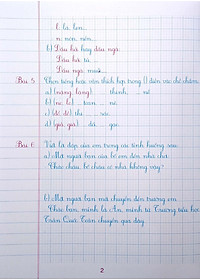 l: la, lon...
n: non, nón...
b) Dấu hỏi hay dấu ngã:
Dấu hỏi: tả
Dấu ngã:
Bài 5 Chọn tiếng hoặc vần thích hợp trong () điền vào chỗ chấm:
a) (nang, lang) ... thinh ... nẻ
b) (no, lo) ... toan ... nê
c) (đổ, đỗ) thi ... rác
d) (giả, giã) ... da ... gạo
Bài 6 Viết lời đáp của em trong các tình huống sau:
a) Một người bạn của bố em đến nhà chơi:
Chào cháu, bố cháu có nhà không vậy?
b) Một người bạn mới chuyển đến trường em
Chào bạn, mình là An, mình từ Trường tiểu học
Trần Quốc Toản chuyển qua đây
2